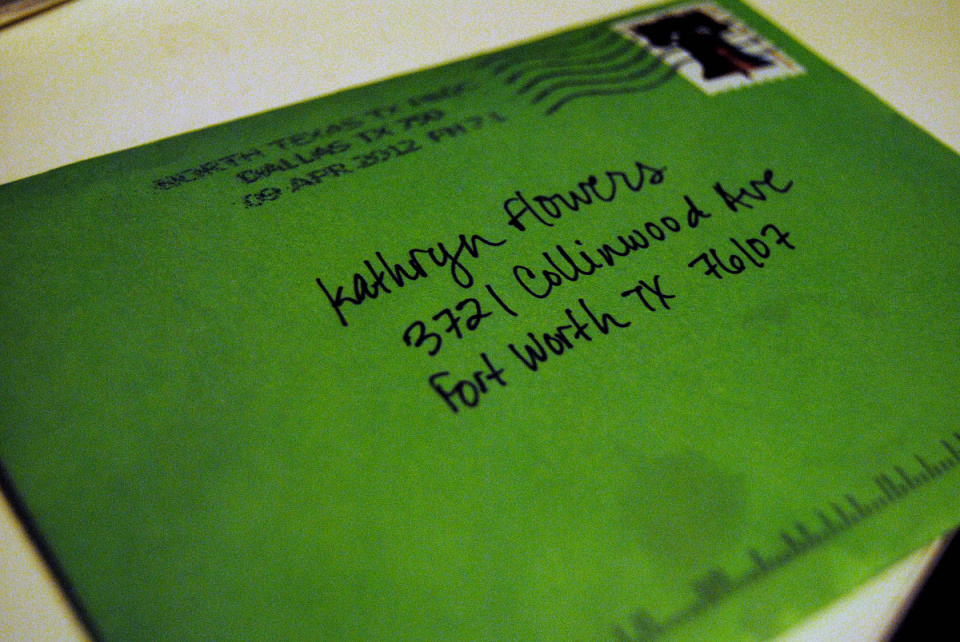 NORTH TEXAS TX
DALLAS TX 750
09 APR 2012 PM
Kathryn Flowers
3721 Collinwood Ave
Fort Worth TX 76107